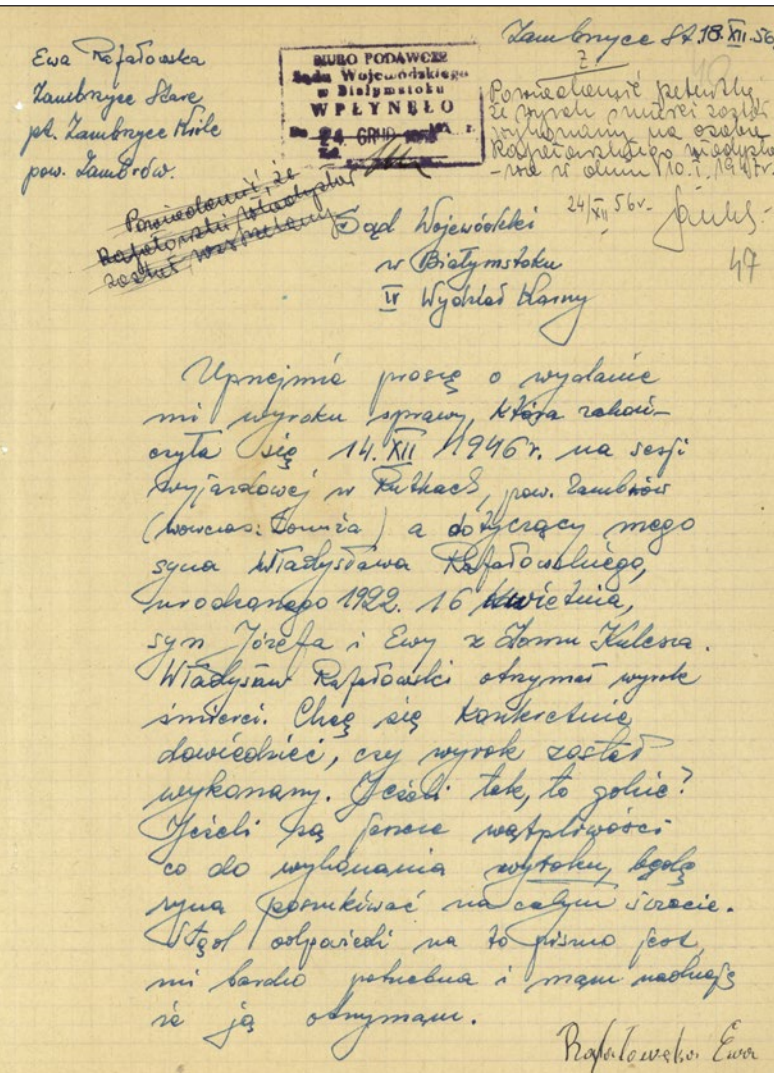 Ewa Rafałowska
Zambrzyce Stare
pt. Zambrzyce Króle
pow. Zambrów.
BIURO PODAWCZE
Sądu Wojewódzkiego
w Białymstoku
WPŁYNĘŁO
24. GRUD 195
Zambrzyce St. 18.XII.56
Z
Powiadomić petentkę
że wyrok śmierci został
wykonany na osobie
Rafałowskiego Władysła-
wa w dniu 10.I.1947r.
24/XII 56r.
47
Powiadomić, że
Rafałowski Władysław
został rozstrzelany
Sąd Wojewódzki
w Białymstoku
IV Wydział Karny
Uprzejmie proszę o wydanie
mi wyroku sprawy, która zakoń-
czyła się 14.XII 1946r. na sesji
wyjazdowej w Rutkach, pow. Zambrów
(wowczas: Łomża) a dotyczący mego
syna Władysława Rafałowskiego,
urodzonego 1922. 16 kwietnia,
syn Józefa i Ewy z domu Kulesza.
Władysław Rafałowski otrzymał wyrok
śmierci. Chcę się konkretnie
dowiedzieć, czy wyrok został
wykonany. Jeżeli tak, to gdzie?
Jeżeli są jeszcze wątpliwości
co do wykonania wyroku, będę
syna poszukiwać na całym świecie.
Stąd odpowiedź na to pismo jest
mi bardzo potrzebna i mam nadzieję
że ją otrzymam.
Rafałowska Ewa